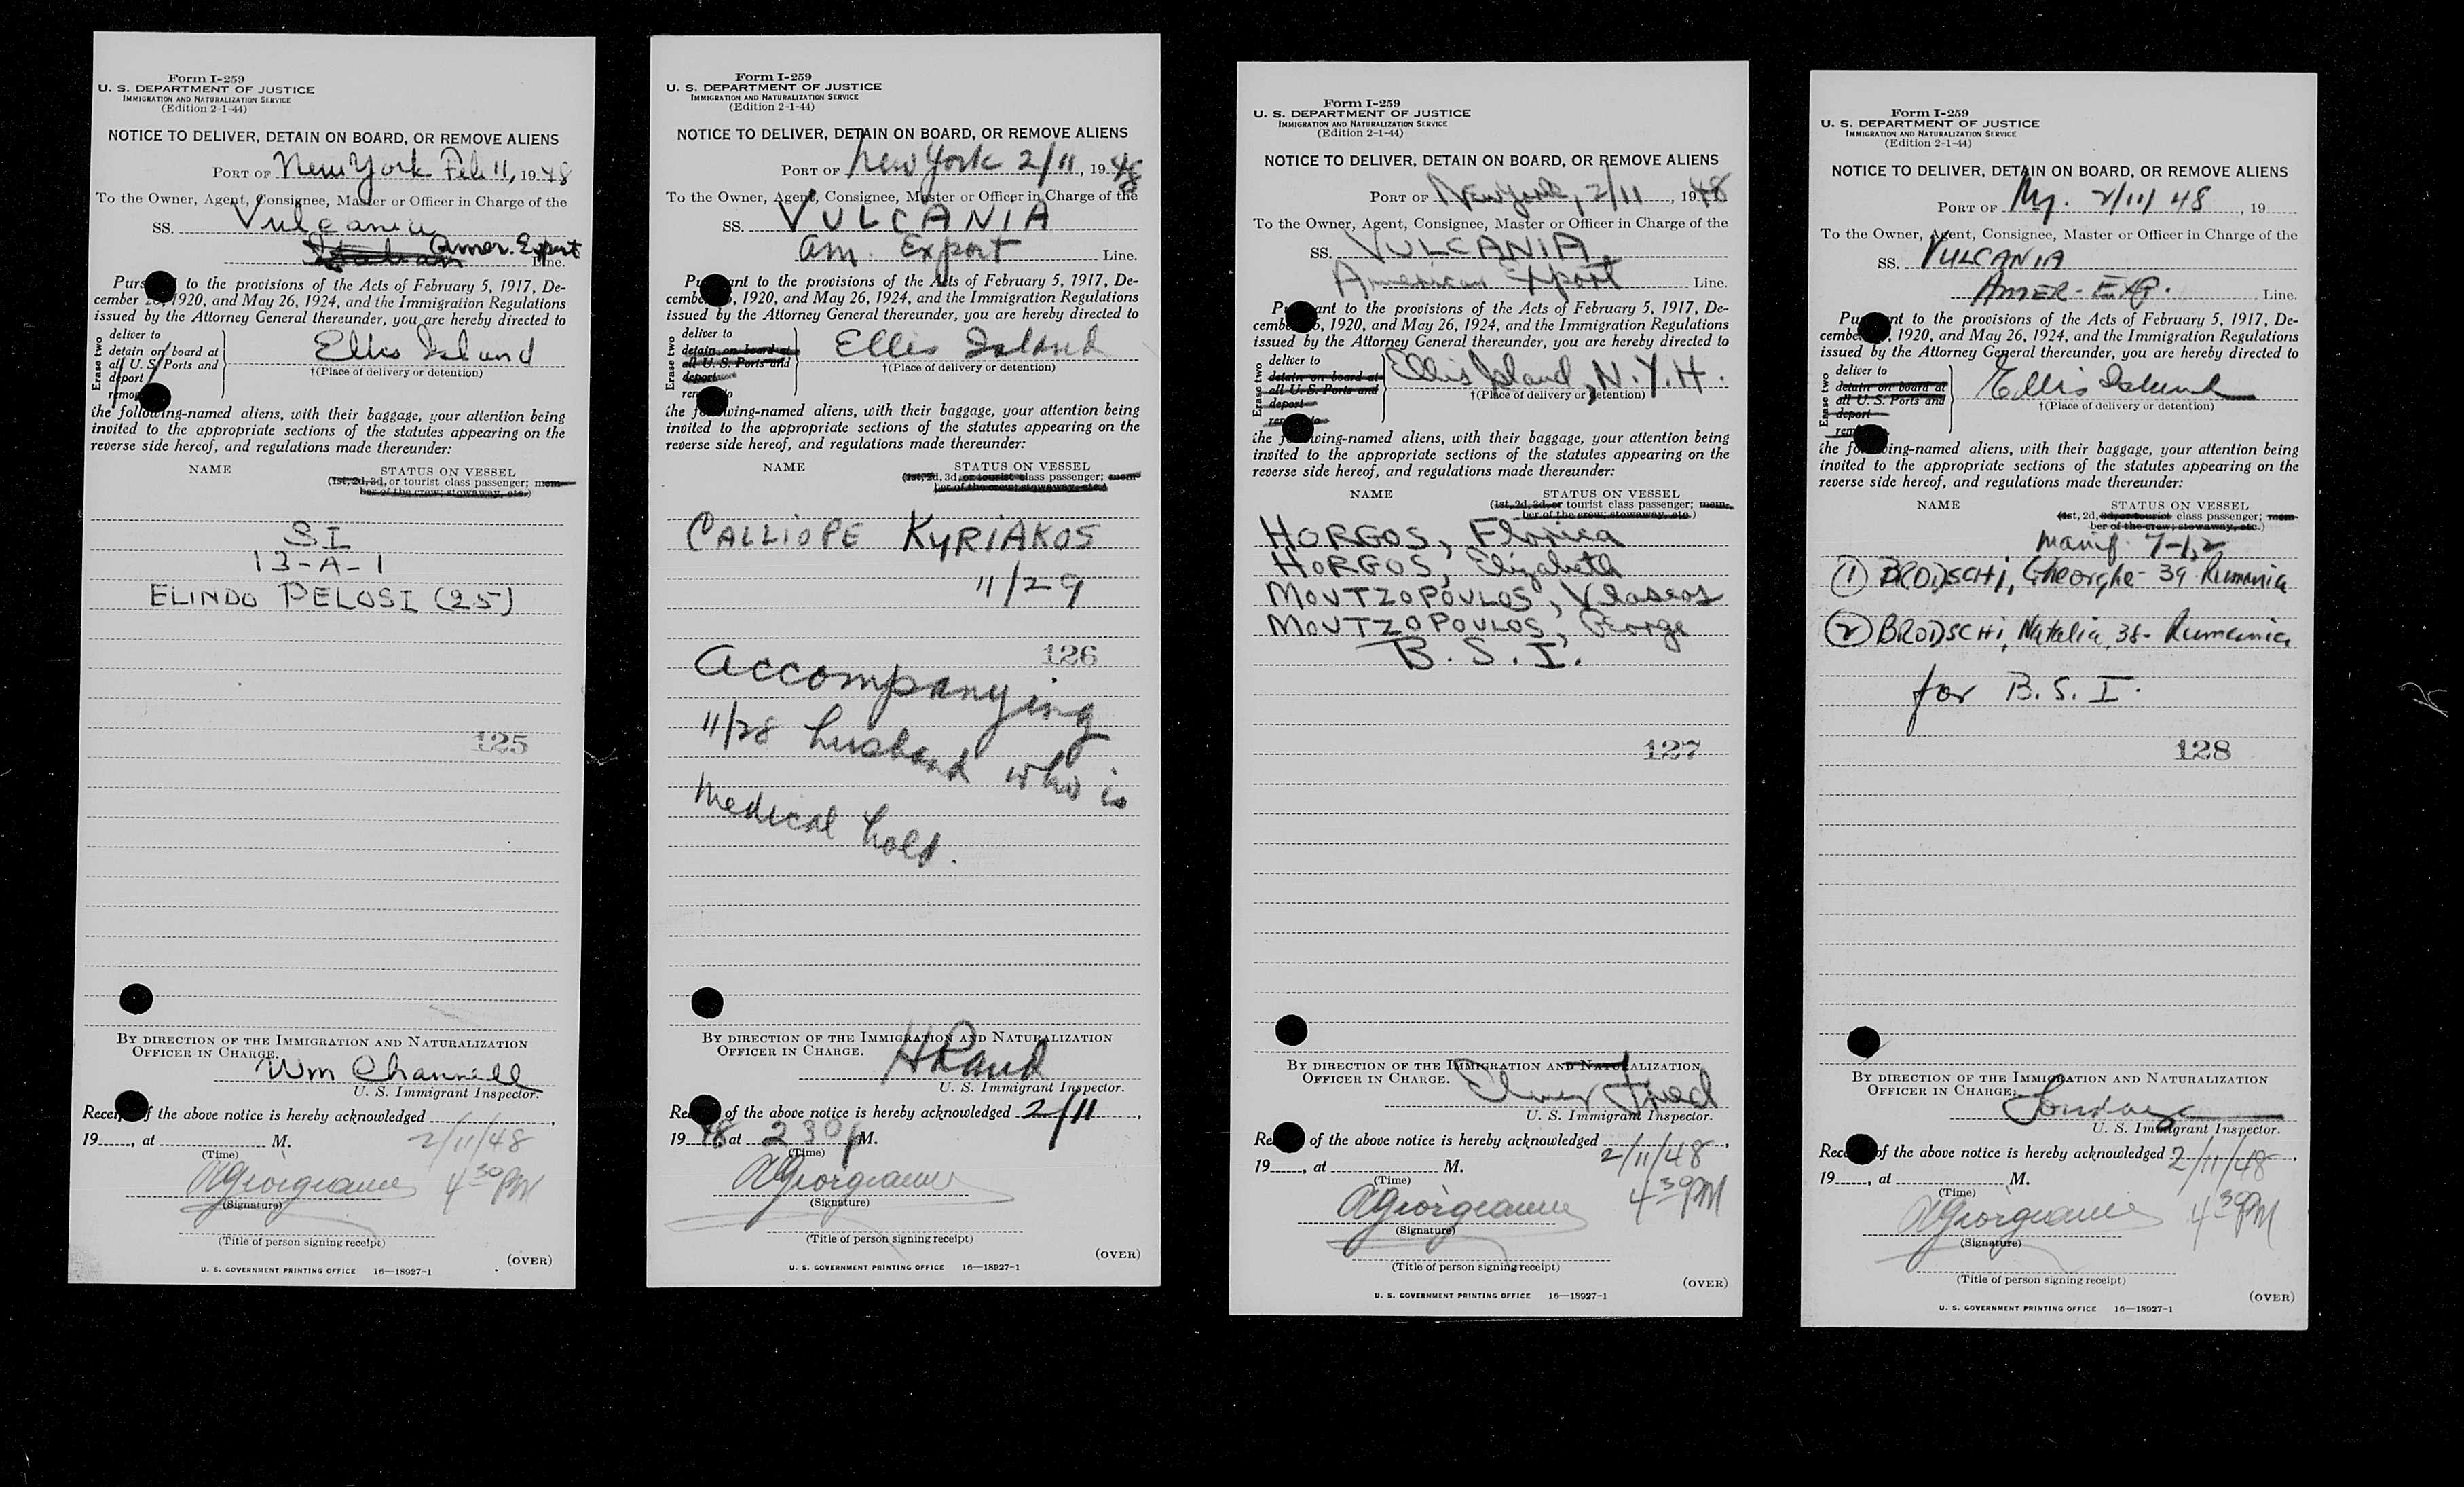 Form I-259
U. S. DEPARTMENT OF JUSTICE
IMMIGRATION AND NATURALIZATION SERVICE
(Edition 2-1-44)
NOTICE TO DELIVER, DETAIN ON BOARD, OR REMOVE ALIENS
PORT OF New York Feb 11, 1948
To the Owner, Agent, Consignee, Master or Officer in Charge of the
SS. Vulcania
Italian Amer. Export
Line.
Pursuant to the provisions of the Acts of February 5, 1917, De-
cember 26, 1920, and May 26, 1924, and the Immigration Regulations
issued by the Attorney General thereunder, you are hereby directed to
Erase two
deliver to
detain on board at
all U. S. Ports and
deport
remove to
Ellis Island
†(Place of delivery or detention)
the following-named aliens, with their baggage, your attention being
invited to the appropriate sections of the statutes appearing on the
reverse side hereof, and regulations made thereunder:
NAME STATUS ON VESSEL
(1st, 2d, 3d, or tourist class passenger; mem-
ber of the crew; stowaway, etc.)
SI
13-A-1
ELINDO PELOSI (25)
125
BY DIRECTION OF THE IMMIGRATION AND NATURALIZATION
OFFICER IN CHARGE.
Wm Channell
U. S. Immigrant Inspector.
Receipt of the above notice is hereby acknowledged
19 , at M. 2/11/48
(Time)
4 30 PM
(Signature)
(Title of person signing receipt)
(OVER)
U. S. GOVERNMENT PRINTING OFFICE 16—18927-1
Form I-259
U. S. DEPARTMENT OF JUSTICE
IMMIGRATION AND NATURALIZATION SERVICE
(Edition 2-1-44)
NOTICE TO DELIVER, DETAIN ON BOARD, OR REMOVE ALIENS
PORT OF New York 2/11, 1948
To the Owner, Agent, Consignee, Master or Officer in Charge of the
SS. VULCANIA
am. Export Line.
Pursuant to the provisions of the Acts of February 5, 1917, De-
cember 26, 1920, and May 26, 1924, and the Immigration Regulations
issued by the Attorney General thereunder, you are hereby directed to
Erase two
deliver to
detain on board at
all U. S. Ports and
deport
remove to
Ellis Island
†(Place of delivery or detention)
the following-named aliens, with their baggage, your attention being
invited to the appropriate sections of the statutes appearing on the
reverse side hereof, and regulations made thereunder:
NAME STATUS ON VESSEL
(1st, 2d, 3d, or tourist class passenger; mem-
ber of the crew; stowaway, etc.)
CALLIOPE KYRIAKOS
11/29
126
accompanying
11/28 husband who is
medical hold.
BY DIRECTION OF THE IMMIGRATION AND NATURALIZATION
OFFICER IN CHARGE.
U. S. Immigrant Inspector.
Receipt of the above notice is hereby acknowledged 2/11,
1948 at 2 30 P M.
(Time)
(Signature)
(Title of person signing receipt)
(OVER)
U. S. GOVERNMENT PRINTING OFFICE 16—18927-1
Form I-259
U. S. DEPARTMENT OF JUSTICE
IMMIGRATION AND NATURALIZATION SERVICE
(Edition 2-1-44)
NOTICE TO DELIVER, DETAIN ON BOARD, OR REMOVE ALIENS
PORT OF New York, 2/11, 1948
To the Owner, Agent, Consignee, Master or Officer in Charge of the
SS. VULCANIA
American Export Line.
Pursuant to the provisions of the Acts of February 5, 1917, De-
cember 26, 1920, and May 26, 1924, and the Immigration Regulations
issued by the Attorney General thereunder, you are hereby directed to
Erase two
deliver to
detain on board at
all U. S. Ports and
deport
remove to
Ellis Island, N.Y.H.
†(Place of delivery or detention)
the following-named aliens, with their baggage, your attention being
invited to the appropriate sections of the statutes appearing on the
reverse side hereof, and regulations made thereunder:
NAME STATUS ON VESSEL
(1st, 2d, 3d, or tourist class passenger; mem-
ber of the crew; stowaway, etc.)
HORGOS, Florica
HORGOS, Elizabeth
MOUTZOPOULOS, Vlaseos
MOUTZOPOULOS, George
B.S.I.
127
BY DIRECTION OF THE IMMIGRATION AND NATURALIZATION
OFFICER IN CHARGE.
U. S. Immigrant Inspector.
Receipt of the above notice is hereby acknowledged 2/11/48,
19 , at M.
(Time)
4 30 PM
(Signature)
(Title of person signing receipt)
(OVER)
U. S. GOVERNMENT PRINTING OFFICE 16—18927-1
Form I-259
U. S. DEPARTMENT OF JUSTICE
IMMIGRATION AND NATURALIZATION SERVICE
(Edition 2-1-44)
NOTICE TO DELIVER, DETAIN ON BOARD, OR REMOVE ALIENS
PORT OF Ny. 2/11/48, 19
To the Owner, Agent, Consignee, Master or Officer in Charge of the
SS. VULCANIA
AMER-EXP. Line.
Pursuant to the provisions of the Acts of February 5, 1917, De-
cember 26, 1920, and May 26, 1924, and the Immigration Regulations
issued by the Attorney General thereunder, you are hereby directed to
Erase two
deliver to
detain on board at
all U. S. Ports and
deport
remove to
Ellis Island
†(Place of delivery or detention)
the following-named aliens, with their baggage, your attention being
invited to the appropriate sections of the statutes appearing on the
reverse side hereof, and regulations made thereunder:
NAME STATUS ON VESSEL
(1st, 2d, 3d, or tourist class passenger; mem-
ber of the crew; stowaway, etc.)
manif. 7-1,2
(1) BRODSCHI, Gheorghe - 39 Rumania
(2) BRODSCHI, Natalia, 38- Rumania
for B.S.I.
128
BY DIRECTION OF THE IMMIGRATION AND NATURALIZATION
OFFICER IN CHARGE.
U. S. Immigrant Inspector.
Receipt of the above notice is hereby acknowledged 2/11/48,
19 , at M.
(Time)
4 30 PM
(Signature)
(Title of person signing receipt)
(OVER)
U. S. GOVERNMENT PRINTING OFFICE 16—18927-1